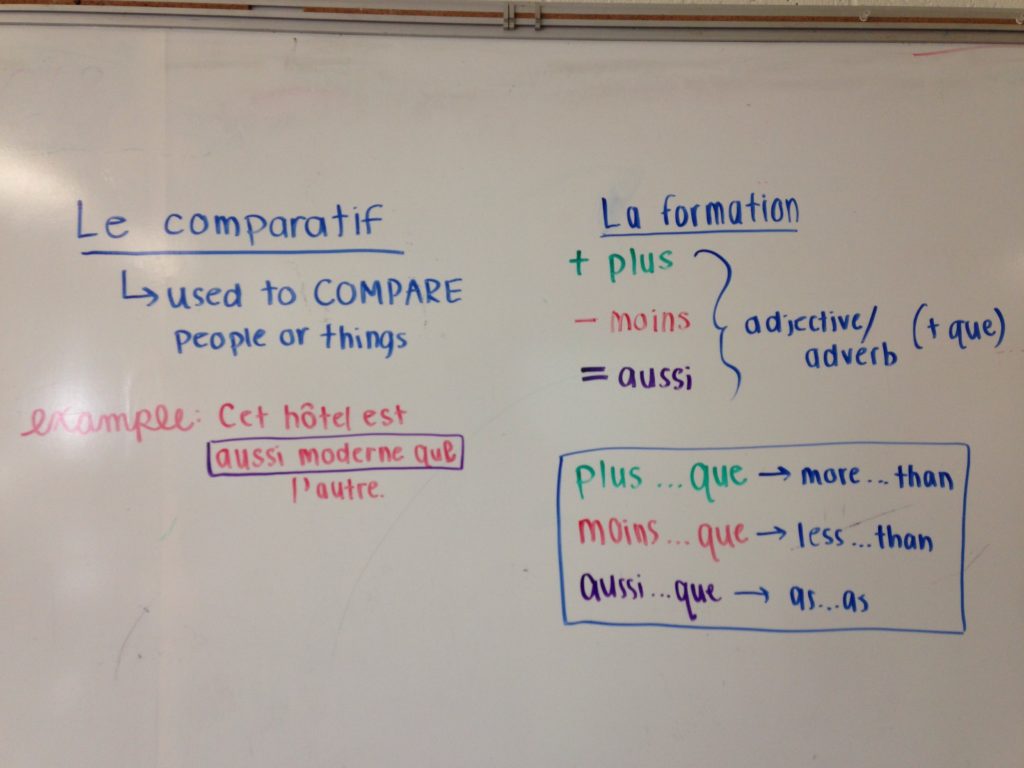 Le comparatif
↳ used to COMPARE
people or things
example: Cet hôtel est
aussi moderne que
l'autre.
La formation
+ plus
- moins
= aussi
adjective/
adverb
(+ que)
plus...que → more...than
moins...que → less...than
aussi...que → as...as